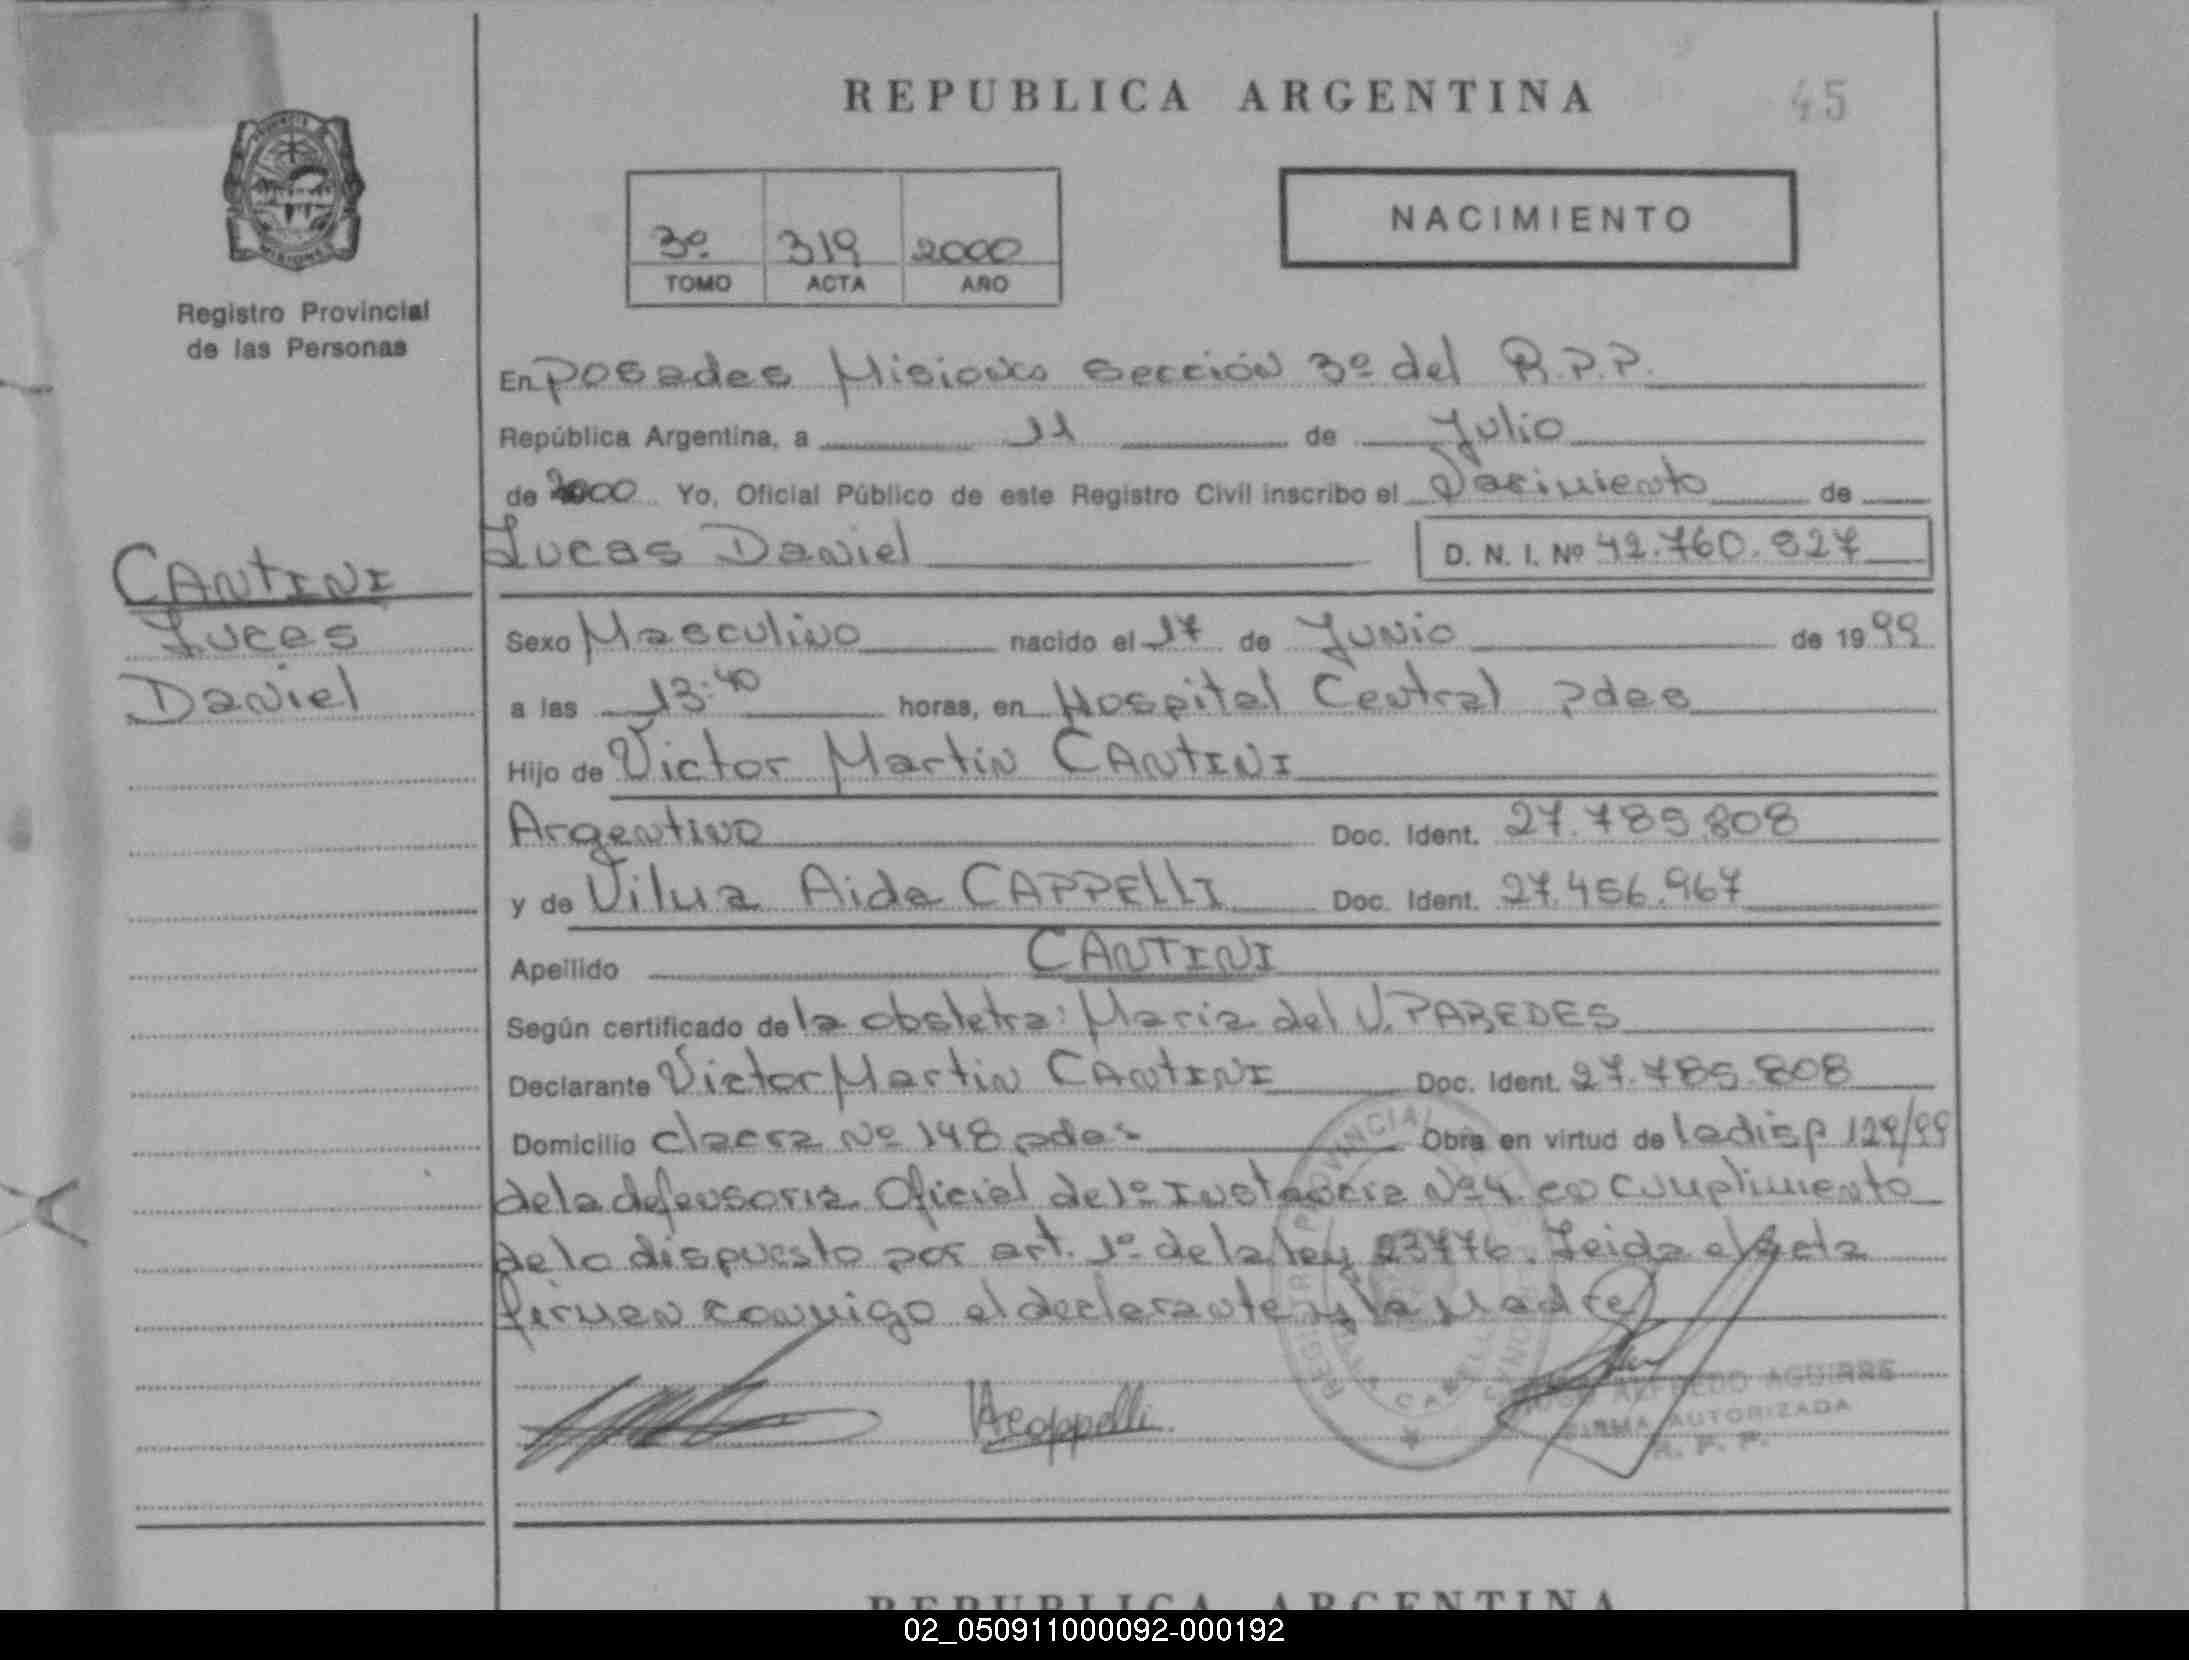 REPUBLICA ARGENTINA
45
PROVINCIA DE
MISIONES
Registro Provincial
de las Personas
3º 319 2000
TOMO ACTA AÑO
NACIMIENTO
En Posadas Misiones Sección 3º del R.P.P.
República Argentina, a 11 de Julio
de 2000 Yo, Oficial Público de este Registro Civil inscribo el Nacimiento de
Lucas Daniel D. N. I. Nº 42.760.827
CANTINI
Lucas
Daniel
Sexo Masculino nacido el 17 de Junio de 1999
a las 13:40 horas, en Hospital Central Pdas
Hijo de Victor Martin CANTINI
Argentino Doc. Ident. 27.785.808
y de Vilma Aida CAPPELLI Doc. Ident. 27.456.967
Apellido CANTINI
Según certificado de la obstetra: Maria del V. PAREDES
Declarante Victor Martin CANTINI Doc. Ident. 27.785.808
Domicilio Nº 148 pdas Obra en virtud de la disp 129/99
de la defensoria Oficial de 1º Instancia Nº 4 en cumplimiento
de lo dispuesto por art. 1º de la ley 23776. Leida el acta
firman conmigo el declarante y la Madre
VAcappelli
REGISTRO PROVINCIAL
ALFREDO AGUIRRE
FIRMA AUTORIZADA
R. P. P.
REPUBLICA ARGENTINA
02_050911000092-000192